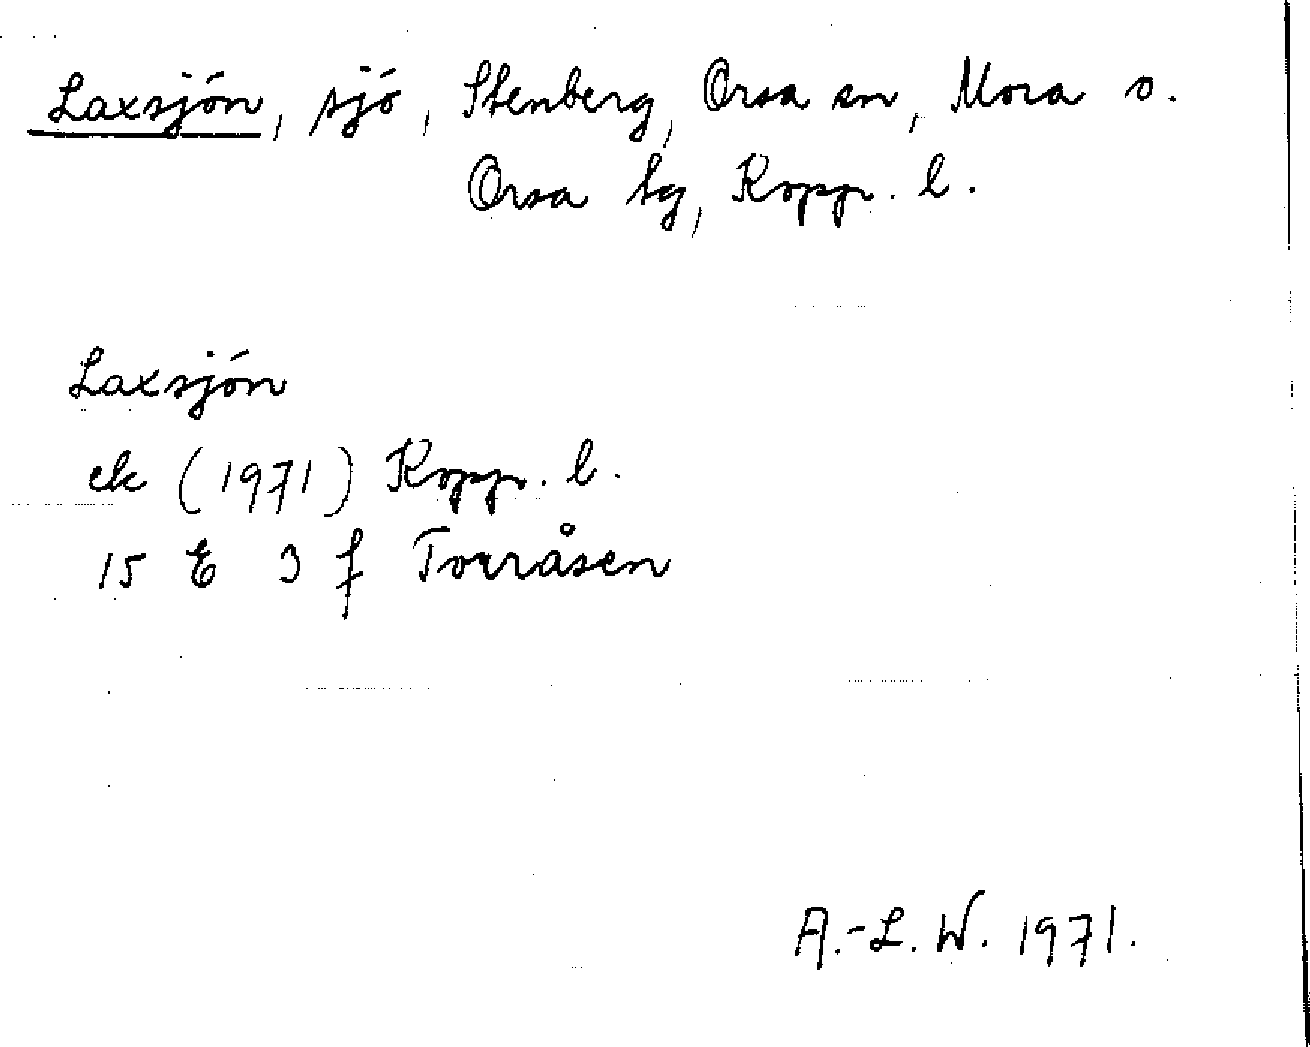 Laxsjön, sjö, Stenberg, Orsa sn, Mora o.
Orsa tg, Kopp. l.
Laxsjön
ek (1971) Kopp. l.
15 E 3 f Torråsen
A.-L. W. 1971.